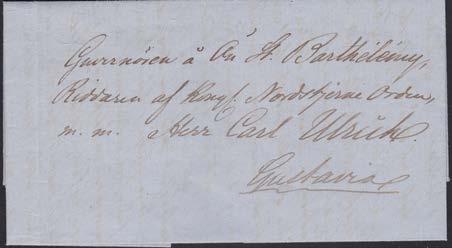 Guvernören å Ön St. Barthélémy,
Riddaren af Kongl. Nordstjerne Orden,
m. m. Herr Carl Ulrich.
Gustavia